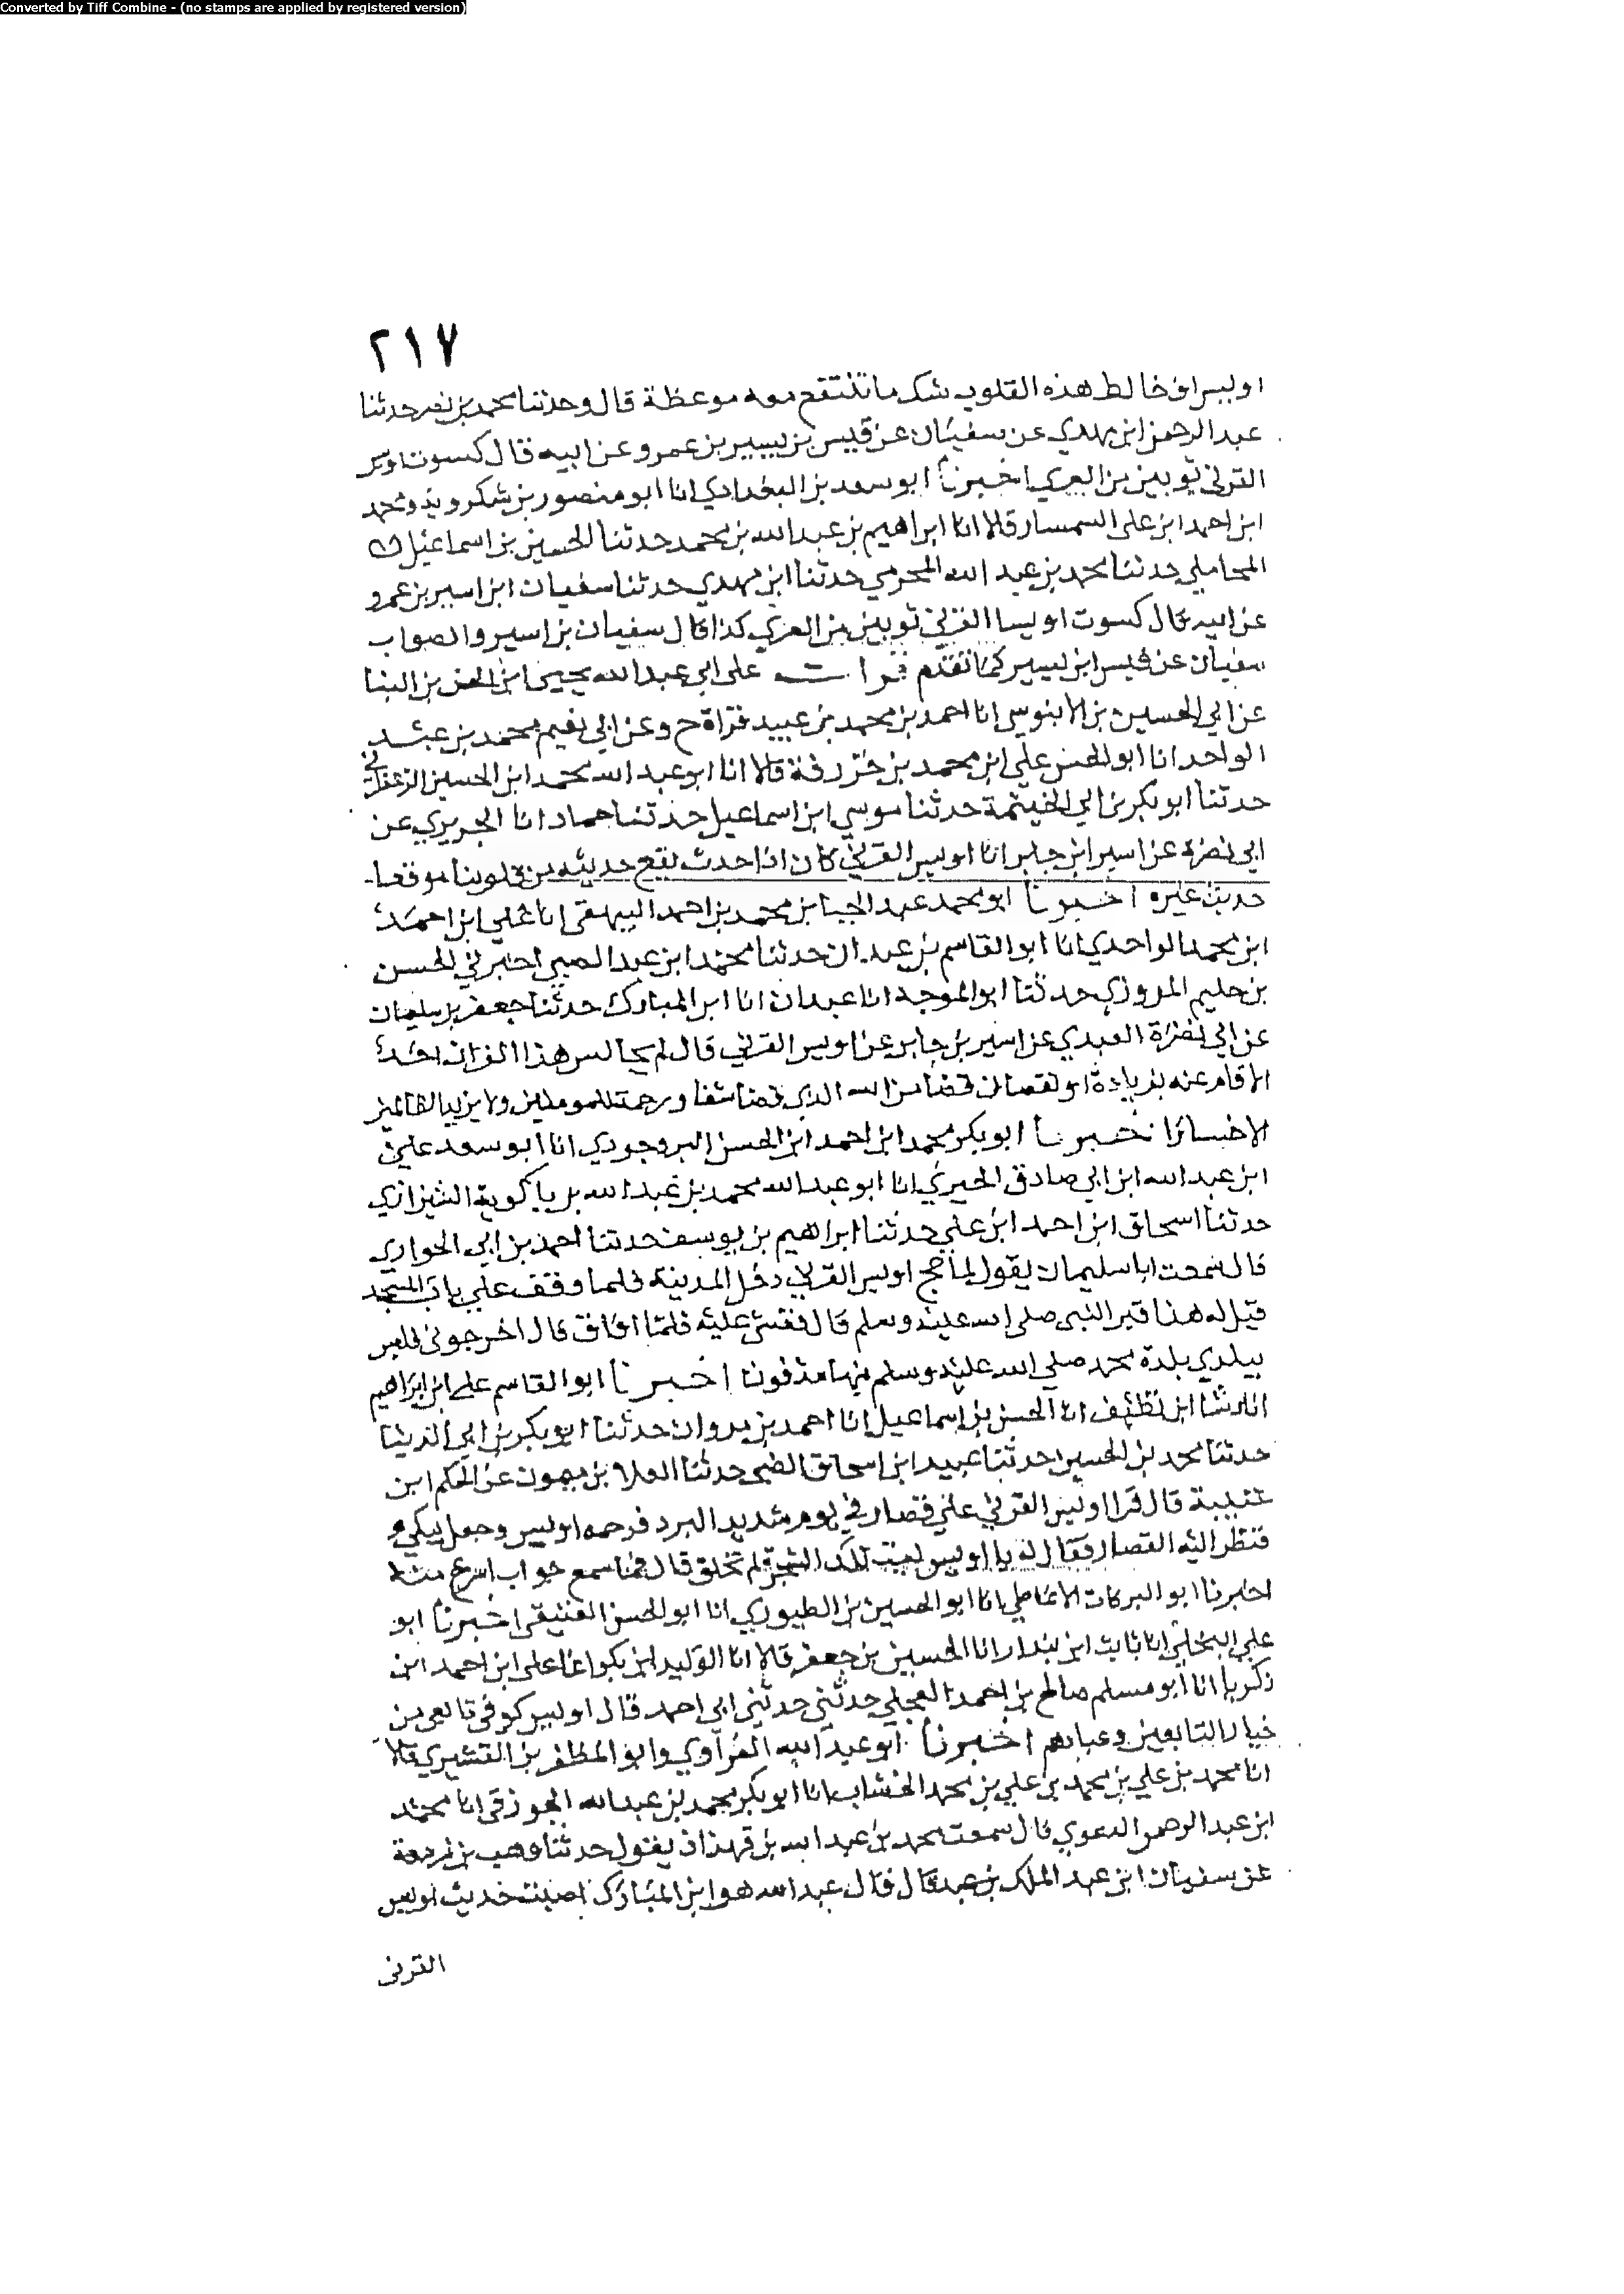 Converted by Tiff Combine - (no stamps are applied by registered version)
٢١٧
اويس اف خالط هذه القلوب شك ما تنتفع معه موعظة قال وحدثنا محمد بن نصر حدثنا
عبد الرحمن ابن مهدي عن سفيان عن قيس بن يسير بن عمرو عن ابيه قال كسوت اويس
القرني ثوبين من العري اخبرنا ابو سعد بن البغدادي انا ابو منصور بن شكرويه ومحمد
ابن احمد ابن على السمسار قالا انا ابراهيم بن عبد الله بن محمد حدثنا الحسين بن اسماعيل
المحاملي حدثنا محمد بن عبد الله المخرمي حدثنا ابن مهدي حدثنا سفيان ابن اسير بن عمرو
عن ابيه قال كسوت اويسا القرني ثوبين من العري كذا قال سفيان بن اسير والصواب
سفيان عن قيس ابن يسير كما تقدم قرات على ابي عبد الله يحيى ابن الحسن بن البنا
عن ابي الحسين بن الابنوسي انا احمد بن محمد بن عبيد قراة ح وعن ابي نعيم محمد بن عبد
الواحد انا ابو الحسن علي ابن محمد بن خزرفة قالا انا ابو عبد الله محمد ابن الحسين الزعفراني
حدثنا ابو بكر بن ابي الخيثمة حدثنا موسي ابن اسماعيل حدثنا حماد انا الجريري عن
ابي نضرة عن اسير ابن جابر انا اويس القرني كان اذا حدث يقع حديثه من قلوبنا موقعا
حديث غيره اخبرنا ابو محمد عبد الجبا بن محمد بن احمد البيهقي انا علي ابن احمد
ابن محمد الواحدي انا ابو القاسم بن عبدان حدثنا محمد ابن عبد الضبي اخبرني الحسن
بن حليم المروزي حدثنا ابو الموجه انا عبدان انا ابن المبارك حدثنا جعفر بن سليمان
عن ابي نضرة العبدي عن اسير بن جابر عن اويس القرني قال لم يجالس هذا القران احد
الا قام عنه بزيادة او نقصان قضا من الله الذي قضا شفا ورحمة للمومنين ولا يزيد الظالمين
الا خسارا اخبرنا ابو بكر محمد ابن احمد ابن الحسن البروجردي انا ابو سعد علي
ابن عبد الله ابن ابي صادق الحيري انا ابو عبد الله محمد بن عبد الله بن باكوية الشيرازي
حدثنا اسحاق ابن احمد ابن علي حدثنا ابراهيم بن يوسف حدثنا احمد بن ابي الحواري
قال سمعت ابا سليمان يقول لما حج اويس القرني دخل المدينة فلما وقف علي باب المسجد
قيل له هذا قبر النبى صلى الله عليه وسلم قال فغشي عليه فلما افاق قال اخرجوني فليس
ببلدي بلدة محمد صلي الله عليه وسلم فيها مدفونا اخبرنا ابو القاسم علي ابن ابراهيم
انا رشا ابن نظيف انا الحسن بن اسماعيل انا احمد بن مروان حدثنا ابو بكر بن ابي الدنيا
حدثنا محمد بن الحسين حدثنا عبيد ابن اسحاق الضبي حدثنا العلا بن ميمون عن الحكم ابن
عتيبة قال مر اويس القرني علي قصار في يوم شديد البرد فرحمه اويس وجعل يبكي و
فنظر اليه القصار فقال له يا اويس ليت تلك الشجرة لم تخلق قال فما سمع جواب اسرع منه
اخبرنا ابو البركات الانماطي انا ابو الحسين بن الطيوري انا ابو الحسن العتيقي اخبرنا ابو
علي البخلي انا ثابت ابن بندار انا الحسين بن جعفر قالا انا الوليد ابن بكر انا علي ابن احمد ابن
زكريا انا ابو مسلم صالح بن احمد العجلي حدثني حدثني ابي احمد قال اويس كوفي تابعي من
خيار التابعين وعبادهم اخبرنا ابو عبد الله الفراوي وابو المظفر بن القشيري قالا
انا محمد بن علي بن محمد بن علي بن محمد الخشاب انا ابو بكر محمد بن عبد الله الجوزقي انا محمد
ابن عبد الرحمن الدغوي قال سمعت محمد بن عبد الله بن قهزاذ يقول حدثنا وهب بن زمعة
عن سفيان ابن عبد الملك بن عبد قال قال عبد الله هو ابن المبارك اصبت حديث اويس
القرني